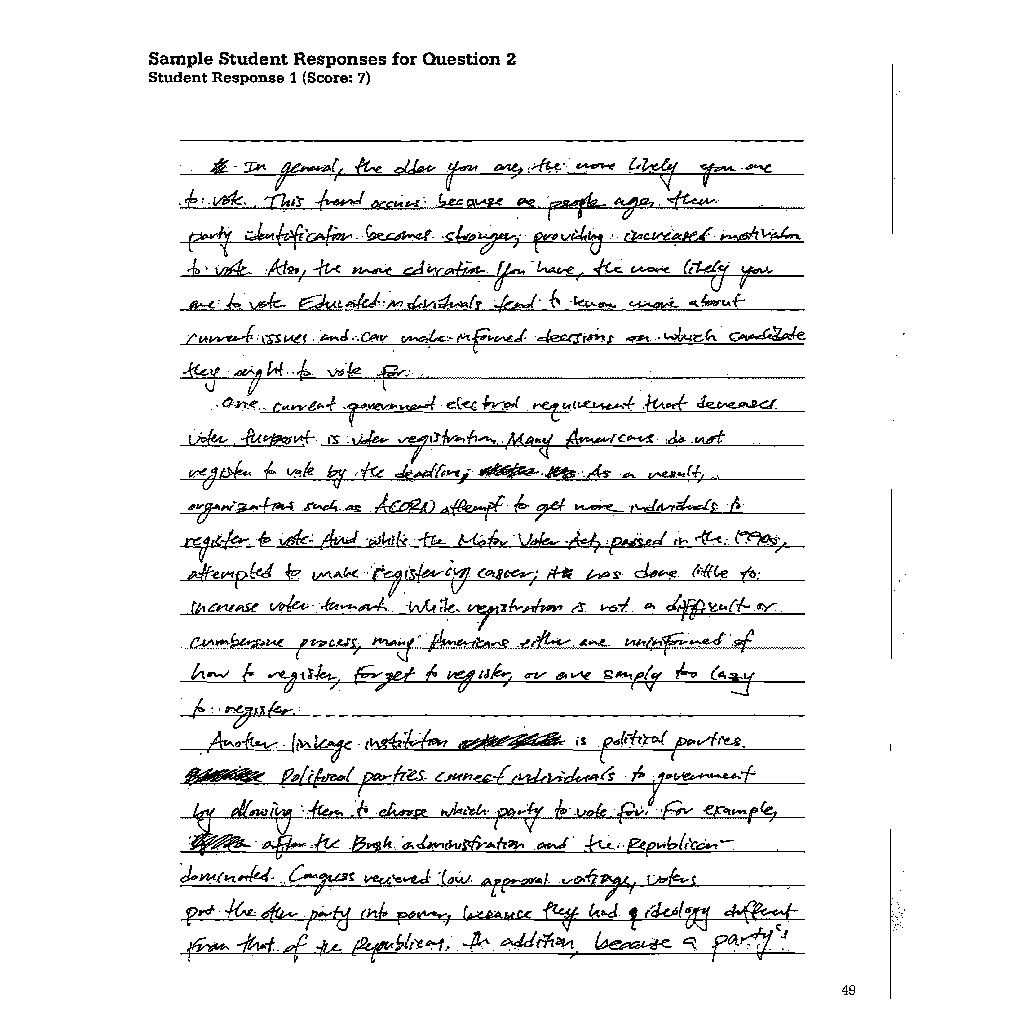 Sample Student Responses for Question 2
Student Response 1 (Score: 7)
In general, the older you are, the more likely you are
to vote. This trend occurs because as people age, their
party identification becomes stronger, providing increased motivation
to vote. Also, the more education you have, the more likely you
are to vote. Educated individuals tend to know more about
current issues and can make informed decisions on which candidate
they ought to vote for.
One current government electoral requirement that decreases
voter turnout is voter registration. Many Americans do not
register to vote by the deadline; As a result,
organizations such as ACORN attempt to get more individuals to
register to vote. And while the Motor Voter Act, passed in the 1990s,
attempted to make registering easier, it has done little to
increase voter turnout. While registration is not a difficult or
cumbersome process, many Americans either are uninformed of
how to register, forget to register, or are simply too lazy
to register.
Another linkage institution is political parties.
Political parties connect individuals to government
by allowing them to choose which party to vote for. For example,
after the Bush administration and the Republican-
dominated Congress received low approval ratings, voters
put the other party into power, because they had a ideology different
from that of the Republicans. In addition, because a party's
49